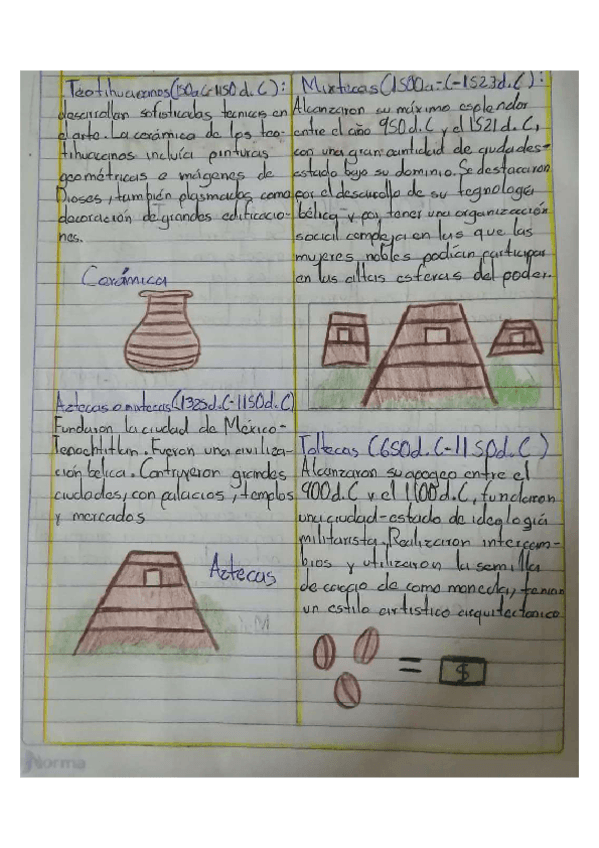 Teotihuacanos (150a.C-1150 d.C):
desarrollan sofisticadas tecnicas en
el arte. La cerámica de los teo-
tihuacanos incluía pinturas
geométricas e imágenes de
Dioses, también plasmadas como
decoración de grandes edificacio-
nes.
Cerámica
Aztecas o mexicas (1325d.C-1150d.C)
Fundaron la ciudad de México-
Tenochtitlan. Fueron una civiliza-
ción bélica. Contruyeron grandes
ciudades, con palacios, templos
y mercados
Aztecas
Mixtecas (1500a.C-1523d.C):
Alcanzaron su máximo esplendor
entre el año 950d.C y el 1521 d.C,
con una gran cantidad de ciudades-
estado bajo su dominio. Se destacaron
por el desarrollo de su tegnología
bélica y por tener una organización
social compleja en las que las
mujeres nobles podían participar
en las altas esferas del poder.
Toltecas (650d.C-1150d.C)
Alcanzaron su apogeo entre el
900d.C y el 1100d.C, fundaron
una ciudad-estado de ideología
militarista. Realizaron intercam-
bios y utilizaron la semilla
de cacao de como moneda, tenían
un estilo artistico arquitectonico
= $
Norma